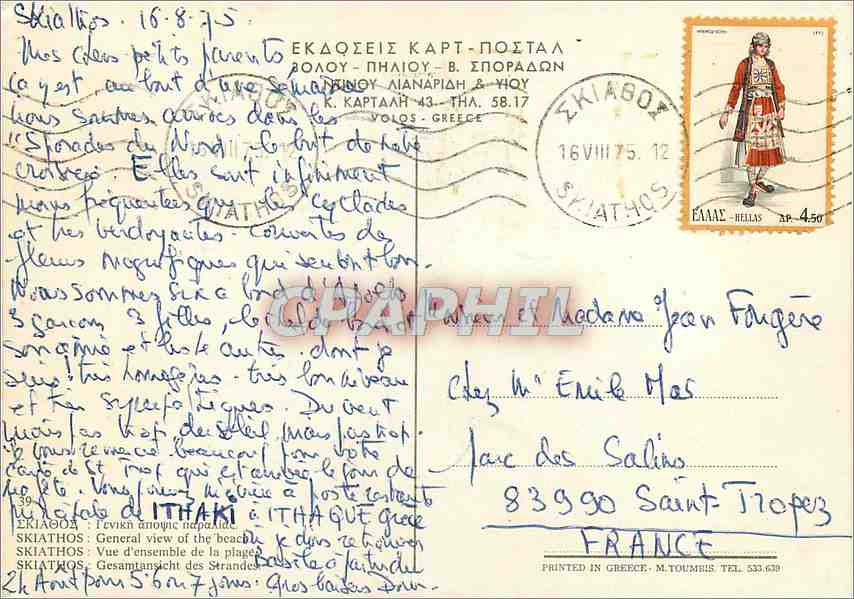 Skiathos . 16.8.75.
Mes chers petits parents
ça y est, au bout d'une semaine
nous sommes arrivés dans les
"Sporades du Nord, le but de notre
croisière. Elles sont infiniment
moins fréquentées que les cyclades
et très verdoyantes - couvertes de
fleurs magnifiques qui sentent bon.
Nous sommes six à bord
3 garçons 3 filles, le chef de bord
son amie et les 4 autres dont je
suis: très homogènes - très bon niveau
et très sympathiques. Du vent
mais pas trop, du soleil mais pas trop.
Je vous remercie beaucoup pour votre
carte de St Trop qui est arrivée le jour de
ma fête. Vous pouvez m'écrire à poste restante
de ITHAKI à ITHAQUE Grèce
où je dois retrouver
Basile à partir du
24 Août pour 5 6 ou 7 jours. Gros baisers
ΕΚΔΟΣΕΙΣ ΚΑΡΤ-ΠΟΣΤΑΛ
ΒΟΛΟΥ - ΠΗΛΙΟΥ - Β. ΣΠΟΡΑΔΩΝ
ΛΙΑΝΑΡΙΔΗ & ΥΙΟΥ
Κ. ΚΑΡΤΑΛΗ 43 - ΤΗΛ. 58.17
VOLOS - GREECE
ΣΚΙΑΘΟΣ
16 VIII 75. 12
SKIATHOS
ΣΚΙΑΘΟΣ
SKIATHOS
ΕΛΛΑΣ - HELLAS ΔΡ. 4.50
CPAPHIL
Monsieur et Madame Jean Fougère
chez Mr Emile Mas
parc des Salins
83990 Saint-Tropez
FRANCE
39
ΣΚΙΑΘΟΣ : Γενική άποψις παραλίας
SKIATHOS : General view of the beach
SKIATHOS : Vue d'ensemble de la plage
SKIATHOS : Gesamtansicht des Strandes
PRINTED IN GREECE - M. TOUMBIS. TEL. 533.639